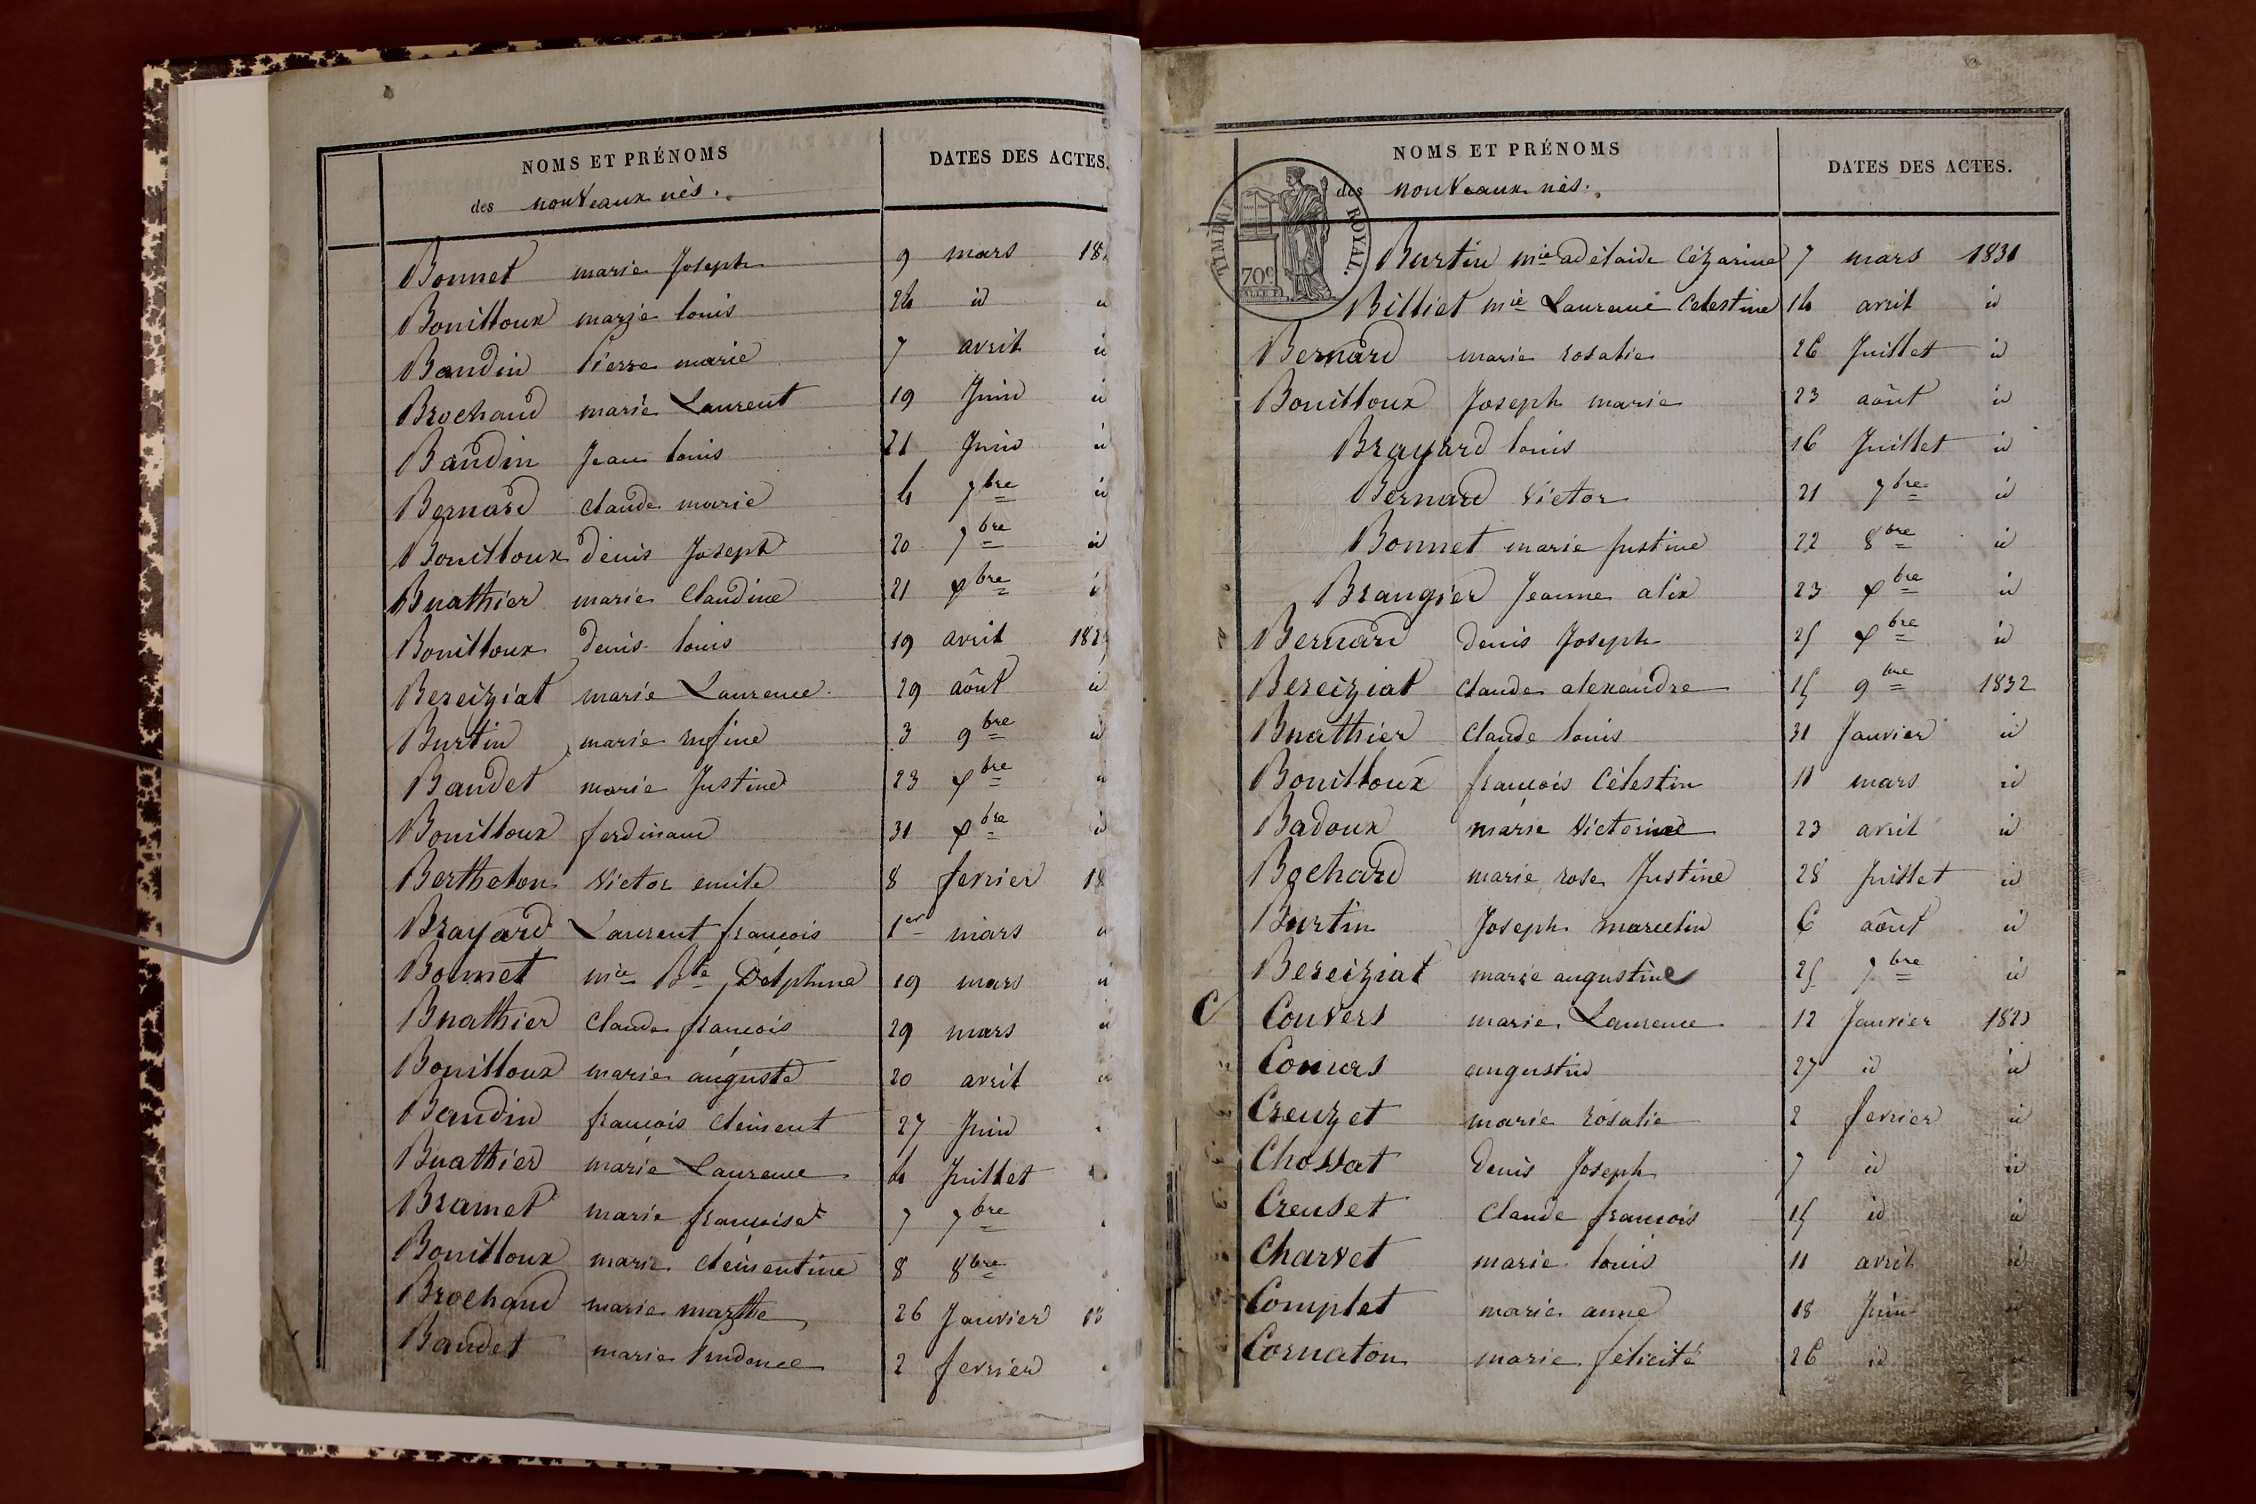 NOMS ET PRÉNOMS DATES DES ACTES.
des nouveaux nés.
Bonnet marie Joseph 9 mars 18
Bouilloux marie louis 24 id id
Baudin Pierre marie 7 avril id
Brochaud marie Laurent 19 Juin id
Baudin Jean louis 21 Juin id
Bernard claude marie 4 7bre id
Bouilloux denis Joseph 20 7bre id
Buathier marie Claudine 21 Xbre id
Bouilloux denis louis 19 avril 182
Bereiziat marie Laurence 29 août id
Burtin marie rufine 3 9bre id
Baudet marie Justine 23 Xbre id
Bouilloux ferdinand 31 Xbre id
Berthelon victor emile 8 fevrier 18
Brayard Laurent françois 1er mars id
Bonnet mie Bte Delphine 19 mars id
Buathier claude françois 29 mars id
Bouilloux marie auguste 20 avril id
Baudin françois clément 27 Juin
Buathier marie Laurence 4 Juillet
Bramet marie françoise 7 7bre
Bouilloux marie clémentine 8 8bre
Brochaud marie marthe 26 Janvier 18
Baudet marie Prudence 2 fevrier
NOMS ET PRÉNOMS DATES DES ACTES.
des nouveaux nés.
TIMBRE ROYAL.
70c
Burtin mie adélaide Cézarine 7 mars 1831
Billiet mie Laurence Celestine 14 avril id
Bernard marie rosalie 26 Juillet id
Bouilloux Joseph marie 23 août id
Brayard louis 16 Juillet id
Bernard victor 21 7bre id
Bonnet marie Justine 22 8bre id
Brangier Jeanne alix 23 Xbre id
Bernard denis Joseph 25 Xbre id
Bereiziat claude alexandre 15 9bre 1832
Buathier claude louis 31 Janvier id
Bouilloux françois Célestin 11 mars id
Badoux marie victorine 23 avril id
Bochard marie rose Justine 28 Juillet id
Burtin Joseph marcelin 6 août id
Bereiziat marie augustine 25 7bre id
C Convers marie Laurence 12 Janvier 1823
Convers augustin 27 id id
Creuzet marie rosalie 2 fevrier id
Chossat denis Joseph 7 id id
Creuset Claude françois 15 id id
Charvet marie louis 11 avril id
Complet marie anne 18 Juin id
Cornaton marie félicité 26 id id